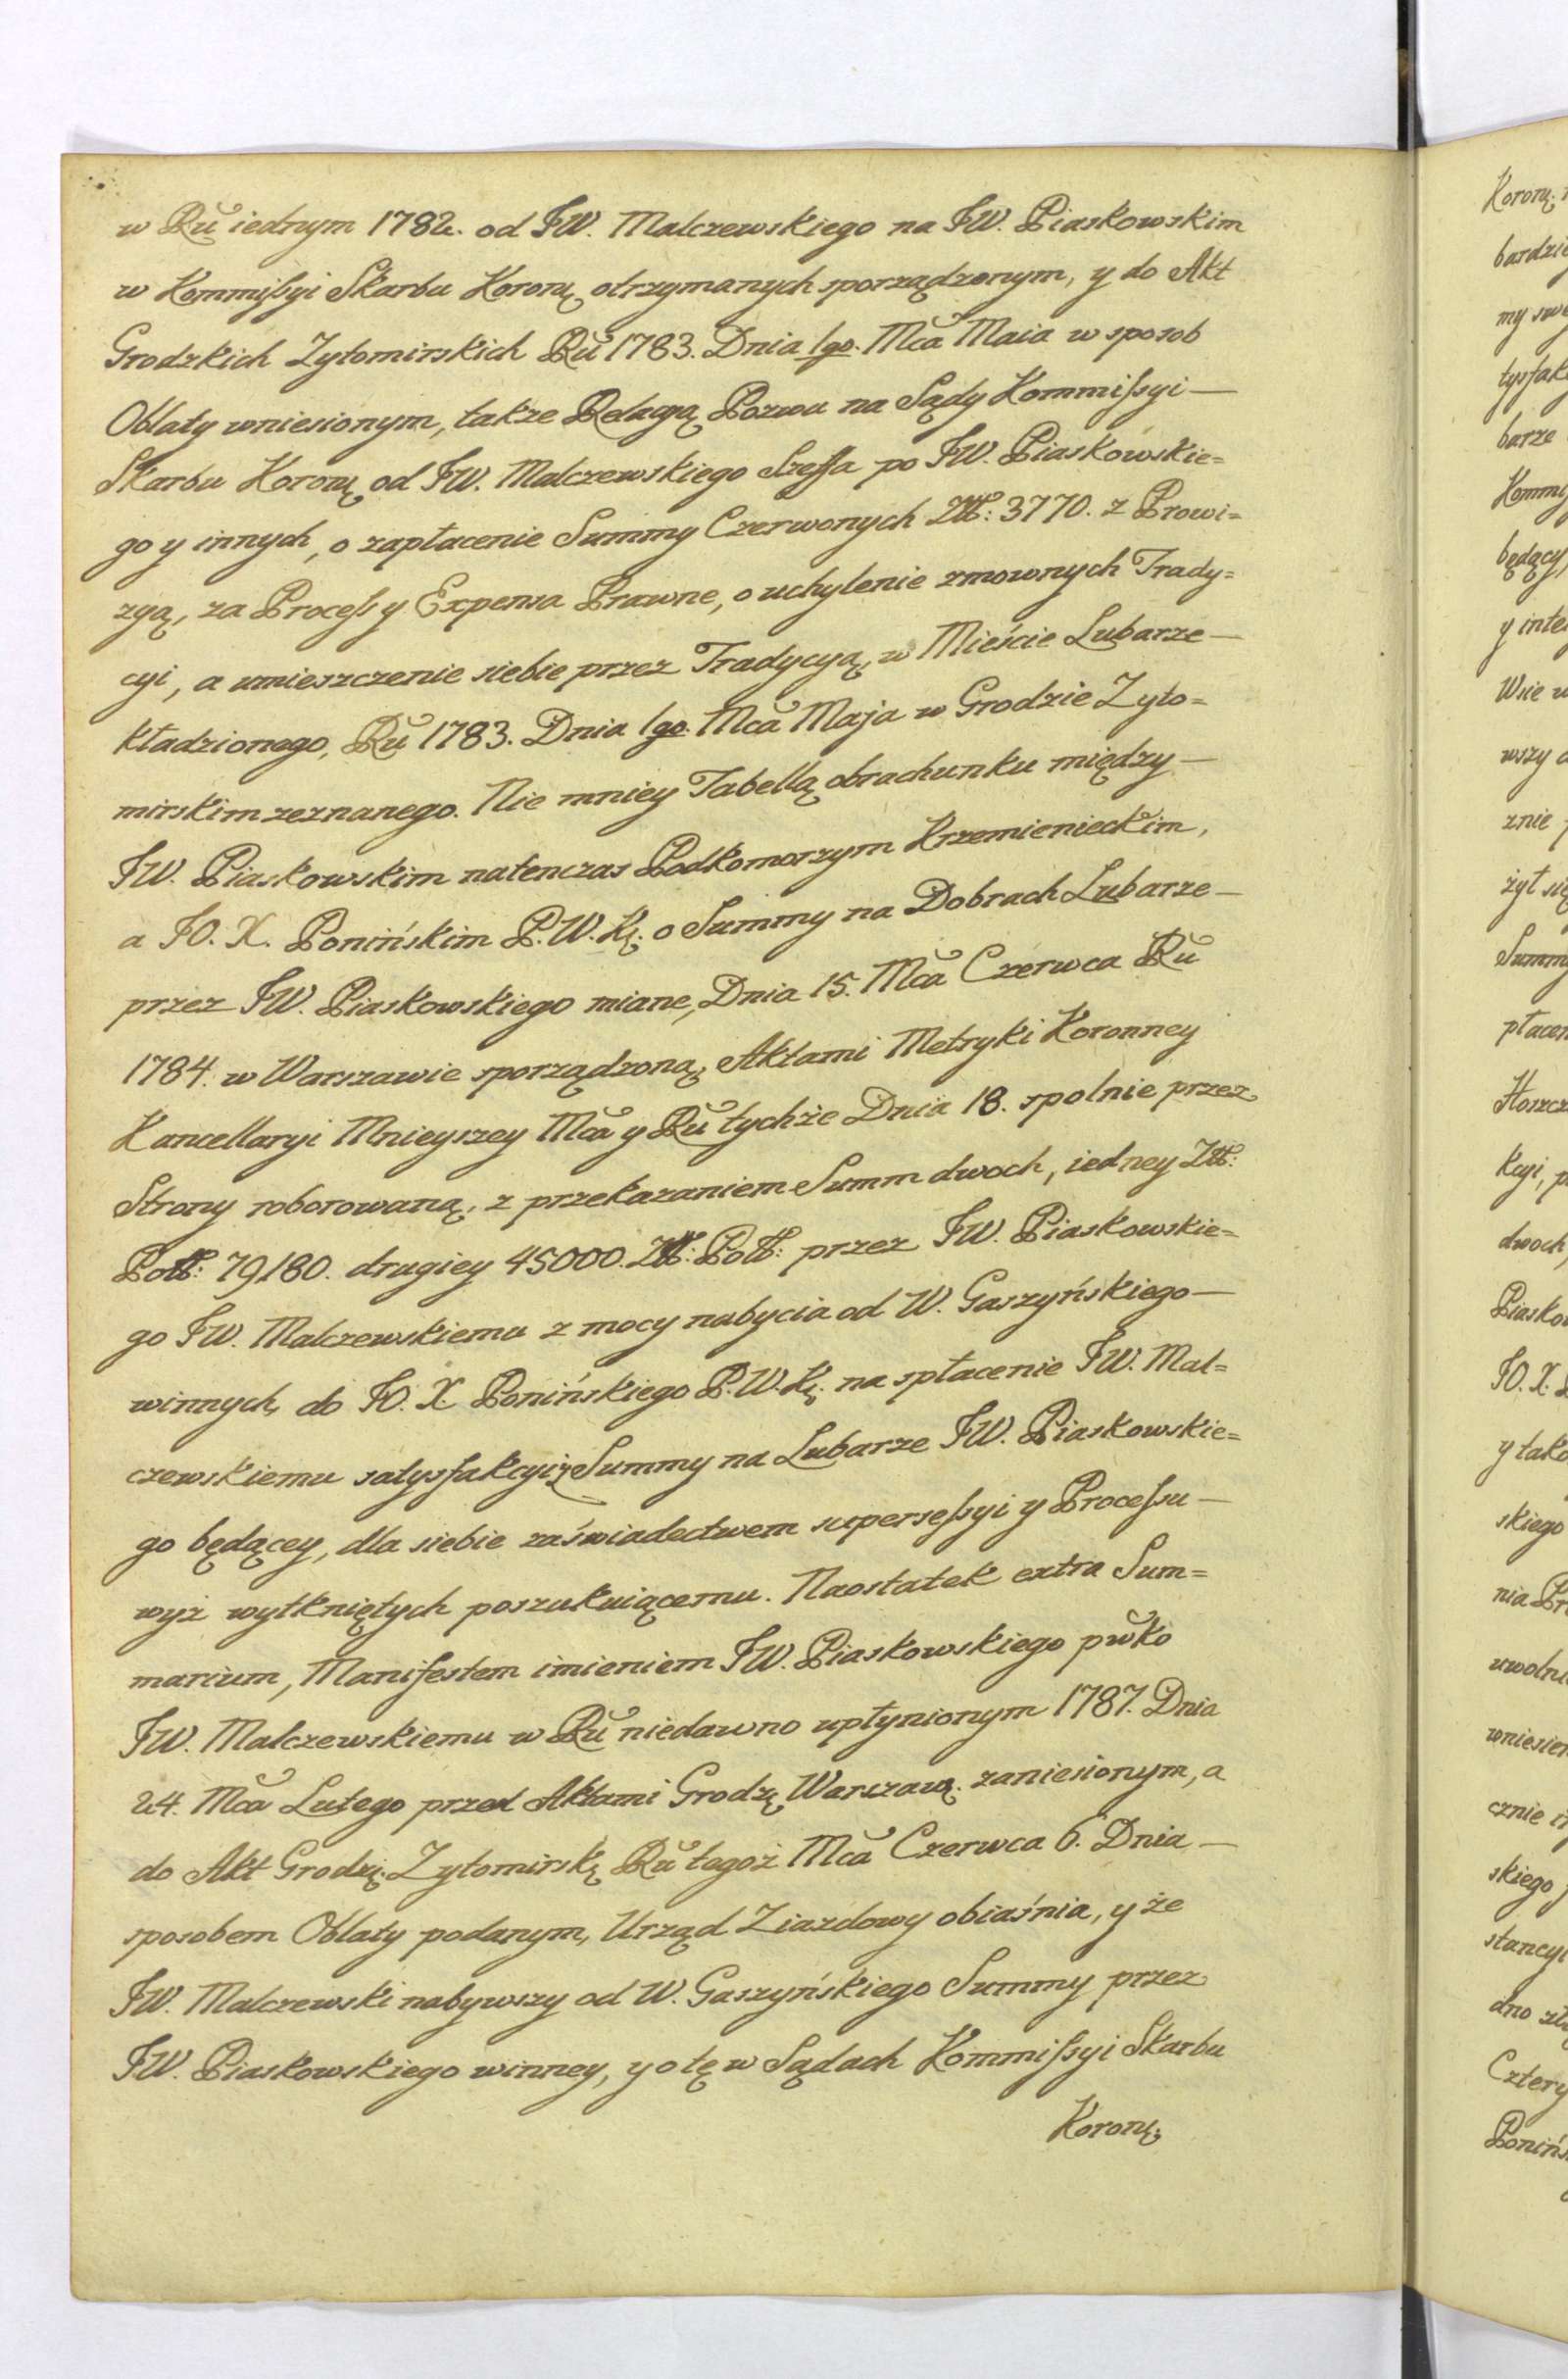 w Ru iednym 1782. od JW. Malczewskiego na JW. Piaskowskim
w Kommissyi Skarbu Koronɳ otrzymanych sporządzonym, y do Akt
Grodzkich Zytomirskich Ru 1783. Dnia 1go. Mca Maia w sposob
Oblaty wniesionym, takze Relacyą Pozwu na Sądy Kommissyi —
Skarbu Koronɳ od JW. Malczewskiego Szeffa po JW. Piaskowskie=
go y innych, o zapłacenie Summy Czerwonych Złł: 3770. z Prowi=
zyą, za Process y Expensa Prawne, o uchylenie zmownych Trady=
cyi, a umieszczenie siebie przez Tradycyą, w Mieście Lubarze —
kładzionego, Ru 1783. Dnia 1go. Mca Maja w Grodzie Zyto=
mirskim zeznanego. Nie mniey Tabellą obrachunku między —
JW. Piaskowskim natenczas Podkomorzym Krzemienieckim,
a JO. X. Ponińskim P. W. K. o Summy na Dobrach Lubarze —
przez JW. Piaskowskiego miane, Dnia 15. Mca Czerwca Ru
1784. w Warszawie sporządzoną, Aktami Metryki Koronney
Kancellaryi Mnieyszey Mca y Ru tychże Dnia 18. spolnie przez
Strony roborowaną, z przekazaniem Summ dwoch, iedney Złł:
Poll: 79,180. drugiey 45000. Złł: Poll: przez JW. Piaskowskie=
go JW. Malczewskiemu z mocy nabycia od W. Gaszyńskiego —
winnych, do JO. X. Ponińskiego P. W. K. na spłacenie JW. Mal=
czewskiemu satysfakcyi z Summy na Lubarze JW. Piaskowskie=
go będącey, dla siebie zaświadectwem supersessyi y Processu —
wyż wytkniętych poszukuiącemu. Naostatek extra Sum=
marium, Manifestem imieniem JW. Piaskowskiego pwko
JW. Malczewskiemu w Ru niedawno upłynionym 1787. Dnia
24. Mca Lutego przed Aktami Grodz. Warszaw. zaniesionym, a
do Akt Grodz. Zytomirsk. Ru tegoż Mca Czerwca 6. Dnia —
sposobem Oblaty podanym, Urząd Ziazdowy obiaśnia, y że
JW. Malczewski nabywszy od W. Gaszyńskiego Summy przez
JW. Piaskowskiego winney, y o tę w Sądach Kommissyi Skarbu
Koronɳ.